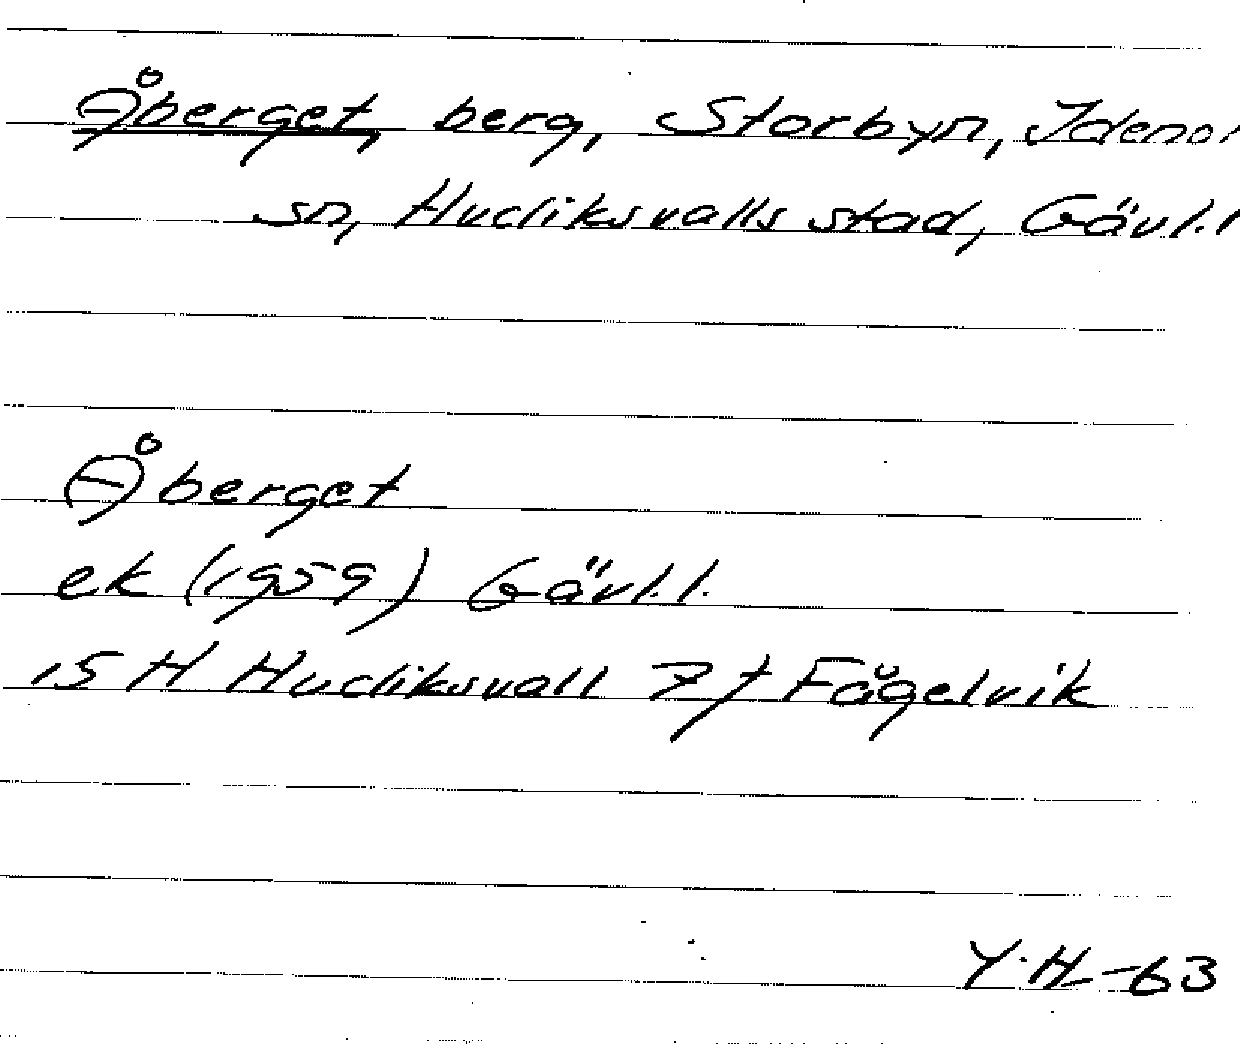 Åberget, berg, Storbyn, Idenor
sn, Hudiksvalls stad, Gävl.l
Åberget
ek (1959) Gävl.l.
15 H Hudiksvall 7 f Fågelvik
Y.H. -63